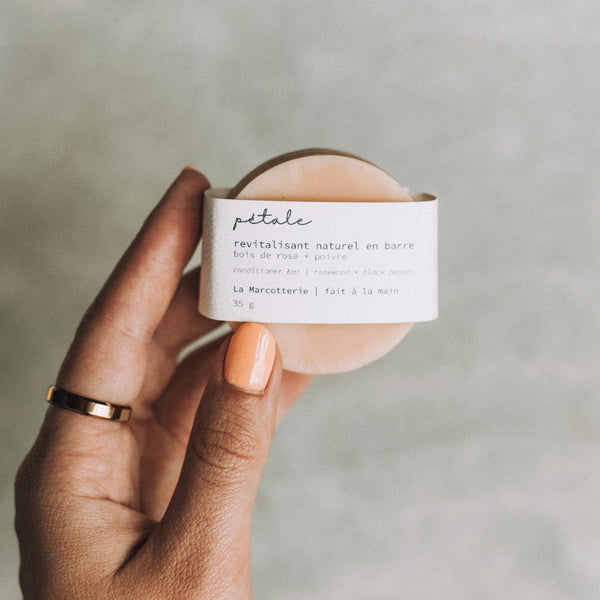 pétale
revitalisant naturel en barre
bois de rose + poivre
conditioner bar | rosewood + black pepper
La Marcotterie | fait à la main
35 g